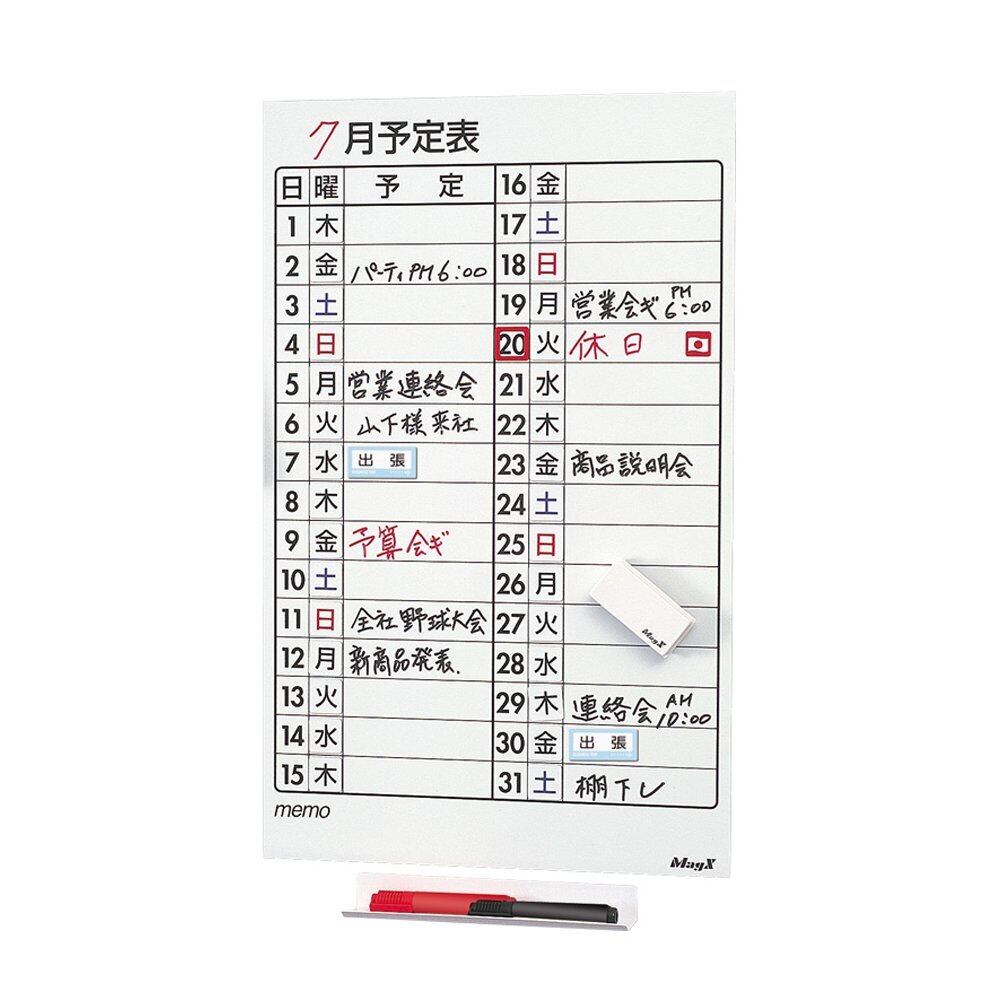 7月予定表
日 曜 予 定
1 木
2 金 パーティPM6:00
3 土
4 日
5 月 営業連絡会
6 火 山下様来社
7 水 出 張
8 木
9 金 予算会ギ
10 土
11 日 全社野球大会
12 月 新商品発表.
13 火
14 水
15 木
16 金
17 土
18 日
19 月 営業会ギ PM 6:00
20 火 休日
21 水
22 木
23 金 商品説明会
24 土
25 日
26 月
27 火
28 水
29 木 連絡会 AM 10:00
30 金 出 張
31 土 棚下し
MagX
memo
MagX